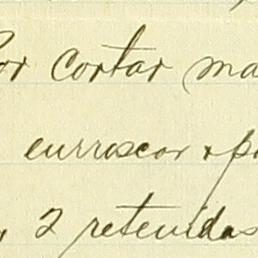 Por cortar ma
enroscar y pa
y 2 retenidas